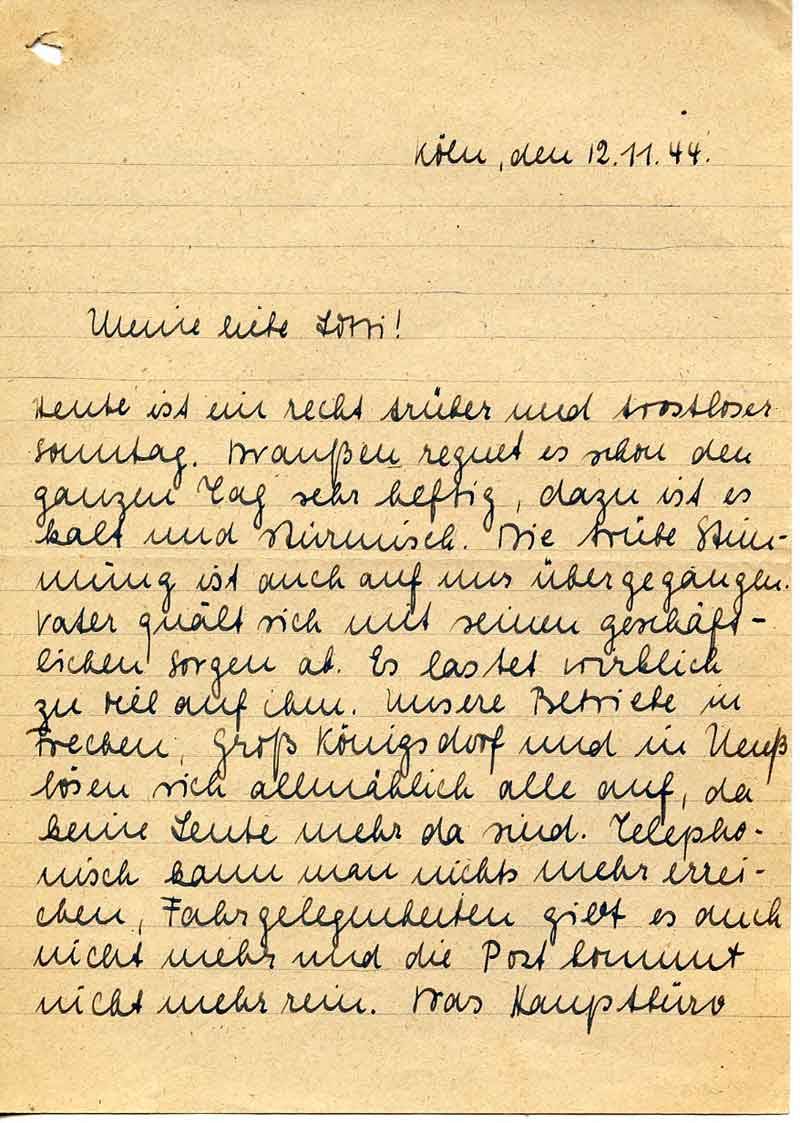 Köln, den 12.11.44.
Meine liebe Lotti!
Heute ist ein recht trüber und trostloser
Sonntag. Draußen regnet es schon den
ganzen Tag sehr heftig, dazu ist es
kalt und stürmisch. Die trübe Stim-
mung ist auch auf uns übergegangen.
Vater quält sich mit seinen geschäft-
lichen Sorgen ab. Es lastet wirklich
zu viel auf ihm. Unsere Betriebe in
Frechen, Groß Königsdorf und in Neuß
lösen sich allmählich alle auf, da
keine Leute mehr da sind. Telepho-
nisch kann man nichts mehr errei-
chen, Fahrgelegenheiten gibt es auch
nicht mehr und die Post kommt
nicht mehr rein. Das Hauptbüro